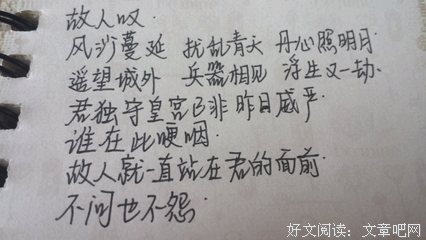 故人叹.
风沙蔓延 扰乱青天 丹心照明月.
遥望城外 兵器相见 浮生又一劫.
君独守皇宫已非昨日威严.
谁在此哽咽.
故人就一直站在君的面前.
不问也不怨.
好文阅读：文章吧网